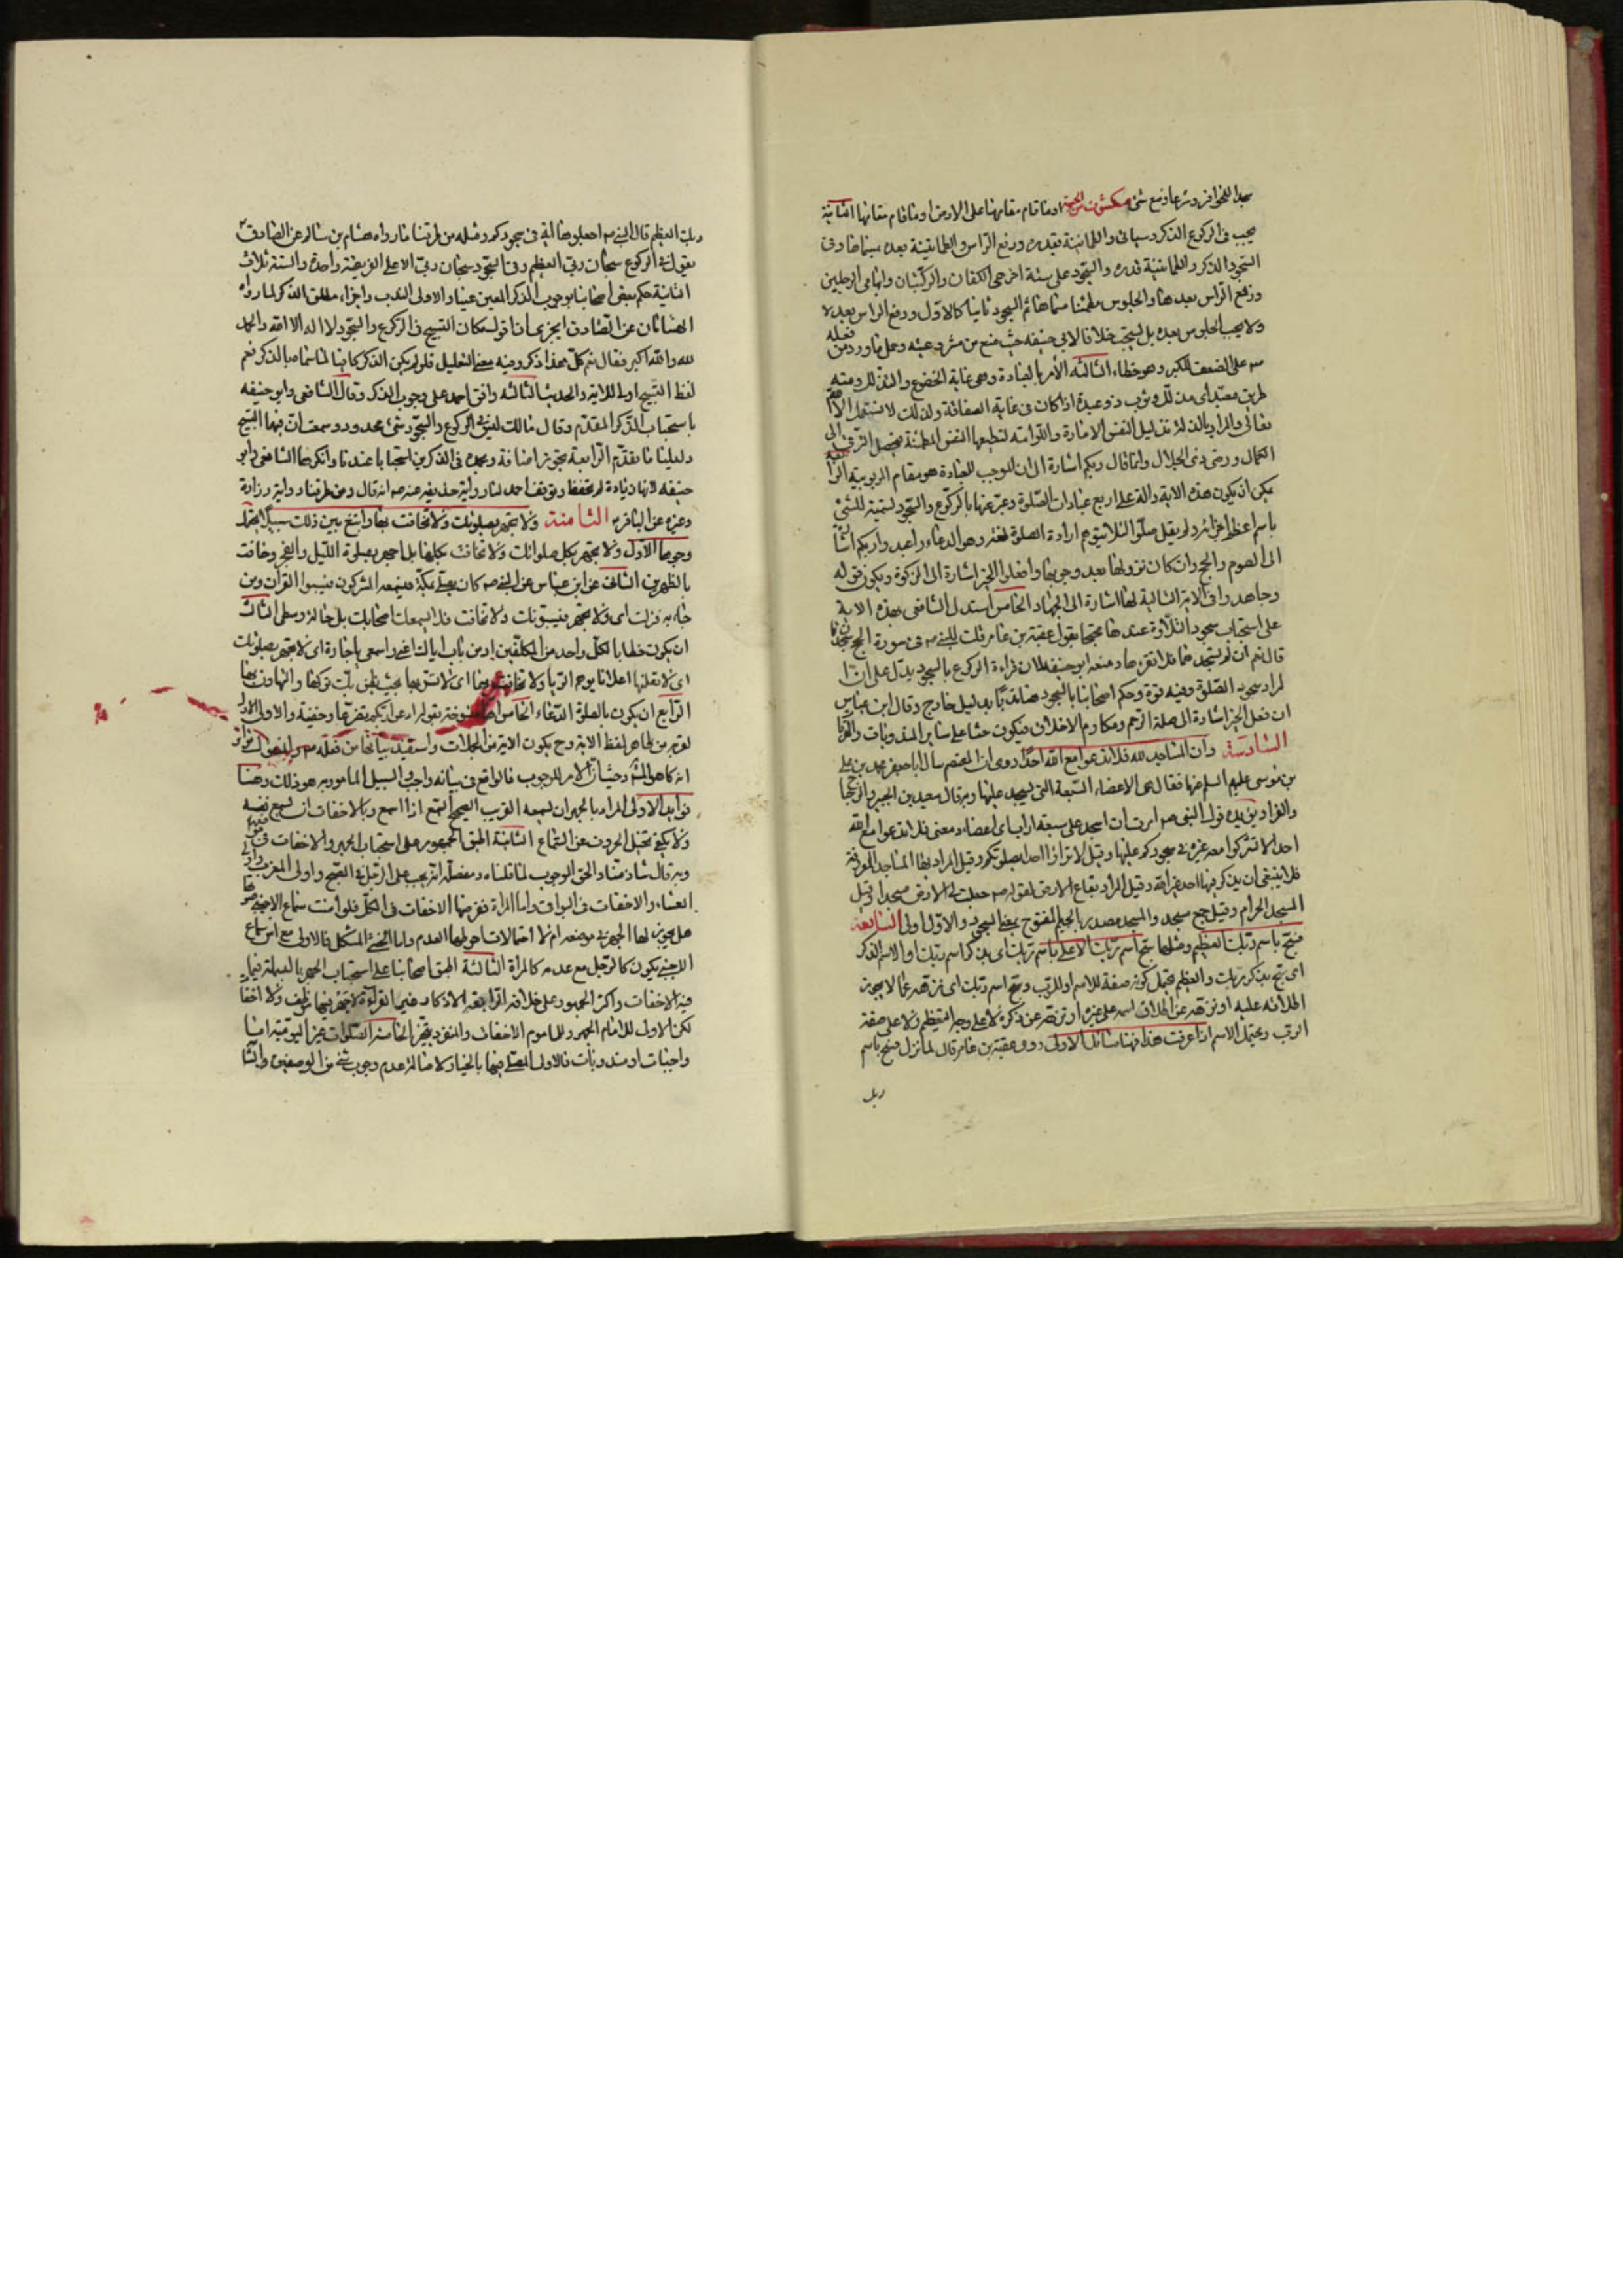 يجب في الركوع الذكر وسيأتي والطمأنينة بقدره ورفع الراس والطمانينة بعده
السجود الذكر والطمانينة قدره والسجود على ستة اخرى الكفان والركبتان وابهامى الرجلين
ورفع الراس بعدها والجلوس مطمئنا ثم السجود ثانيا كالاول ورفع الراس بعده
ولا يجب الجلوس بعده بل يستحب خلافا لابي حنيفه حيث منع من مشروعيته وحمل ما ورد من فعله
ص على الضعف للكبر وهو خطاء الثالثة الأمر بالعبادة وهي غاية الخضوع والتذلل ومنه
طريق معبد اى مذلل وثوب ذو عبدة اذا كان في غاية الصفاقة ولذلك لا تستعمل الا
تعالى والمراد بالتذلل تذليل النفس الامارة واللوامة لتطيعها النفس المطمئنة فيحصل الترقى الى
الكمال ورضى ذى الجلال وانما قال ربكم اشارة الى ان الموجب للعبادة هو مقام الربوبية
يمكن ان يكون هذه الاية دالة على اربع عبادات الصلوة وعبر عنها بالركوع والسجود تسمية للشئ
باسم اعظم اجزائه ولم يقل صلوا لئلا يتوهم ارادة الصلوة لغة وهو الدعاء واعبدوا ربكم
الى الصوم والحج وان كان نزولها بعد وجوبها وافعلوا الخير اشارة الى الزكوة ويكون قوله
وجاهدوا في الاية التالية لها اشارة الى الجهاد الخامس استدل الشافعى بهذه الاية
على استحباب سجود التلاوة عندها محتجا بقول عقبة بن عامر قلت للنبى ص في سورة الحج سجدتان
قال نعم ان لم تسجدهما فلا تقرءها ومنعه ابو حنيفه لان قراءة الركوع بالسجود يدل على ان
المراد سجود الصلوة وفيه قوة وحكم اصحابنا بالسجود هنا ندبا بدليل خارج وقال ابن عباس
ان فعل الخير اشارة الى صلة الرحم ومكارم الاخلاق فيكون حثا على ساير المندوبات والقربات
السادسة وان المساجد لله فلا تدعوا مع الله احدا روى ان المعتصم سال ابا جعفر محمد بن على
بن موسى عليهم السلم عنها فقال هى الاعضاء السبعة التى يسجد عليها وبه قال سعيد بن الجبير والزجاج
والفراء يؤيده قول النبى ص امرت ان اسجد على سبعة اراب اى اعضاء ومعنى فلا تدعوا مع الله
احدا لا تشركوا معه غيره في سجودكم عليها وقيل لا تراؤا احدا بصلوتكم وقيل المراد بها المساجد المعروفة
فلا ينبغى ان يذكر فيها احد غير الله وقيل المراد بقاع الارض لقوله ص جعلت لى الارض مسجدا وقيل
المسجد الحرام وقيل جمع مسجد والمسجد مصدر بالجيم المفتوح بمعنى السجود والاول اولى السابعة
فسبح باسم ربك العظيم ومثلها سبح اسم ربك الاعلى باسم ربك اى بذكر اسم ربك او الاسم الذكر
اى سبح بذكر ربك والعظيم يحتمل كونه صفة للاسم او للرب وسبح اسم ربك اى نزهه عما لا يجوز
اطلاقه عليه او نزهه عن اطلاق اسمه على غيره او نزهه عن ذكره لا على وجه التعظيم ولا على صفة
الرب ويحتمل الاسم اذا عرفت هذا فهنا مسائل الاولى روى عقبة بن عامر قال لما نزل فسبح باسم
ربك
ربك العظيم قال النبى ص اجعلوها في سجودكم ومثله من طرقنا ما رواه هشام بن سالم عن الصادق ع
يقول في الركوع سبحان ربى العظيم وفى السجود سبحان ربى الاعلى الفريضة واحدة والسنة ثلاث
الثانية حكم بعض اصحابنا بوجوب الذكر المعين عينا والاولى الندب واجزاء مطلق الذكر لما رواه
الهشامان عن الصادق ع ايجزى ان اقول مكان التسبيح في الركوع والسجود لا اله الا الله والحمد
لله والله اكبر فقال نعم كل هذا ذكر وفيه معنى التعليل فلو لم يكن الذكر كافيا لما سماها بالذكر نعم
لفظ التسبيح اولى للاية والحديث الثالثة وافق احمد على وجوب الذكر وقال الشافعى وابو حنيفه
باستحباب الذكر المقدم وقال مالك ليس في الركوع والسجود شئ محدود وسمعت ان فيهما التسبيح
دليلنا ما تقدم الرابعة يجوز اضافة وبحمده في الذكرين استحبابا عندنا وانكرها الشافعى وابو
حنيفه لانها زيادة لم تحفظ وتوقف احمد لنا رواية حذيفه عنه ص انه قال ومن طرقنا رواية زرارة
وغيره عن الباقر ع الثامنة ولا تجهر بصلوتك ولا تخافت بها وابتغ بين ذلك سبيلا يحتمل
وجوها الاول ولا تجهر بكل صلواتك ولا تخافت بكلها بل اجهر بصلوة الليل والفجر وخافت
بالظهرين الثانى عن ابن عباس عن النبى ص كان يصلى بمكة فيسمعه المشركون فيسبوا القران ومن
جاء به فنزلت اى ولا تجهر فيسبونك ولا تخافت فلا يسمعك اصحابك بل حالة وسطى الثالث
ان يكون خطابا لكل واحد من المكلفين او من باب اياك اعنى واسمعى يا جارة اى لا تجهر بصلوتك
اى لا تعلنها اعلانا يوهم الريا ولا تخافت بها اى لا تسترها بحيث يظن بك تركها والتهاون بها
الرابع ان يكون بالصلوة الدعاء الخامس لقوله ادعوا ربكم تضرعا وخفية والاولى الاول
لقربه من ظاهر لفظ الاية وح يكون الاية من المجملات واستفيد بيانها من فعله ص
وحيث ان الامر للوجوب فالواقع في بيانه واجب السبيل المامور به هو ذلك وهنا
فوايد الاولى المراد بالجهر ان يسمعه القريب الصحيح السمع اذا استمع وبالاخفات ان يسمع نفسه
ولا يكفى تخيل الحروف عن السماع الثانية اطبق الجمهور على استحباب الجهر والاخفات
وبه قال شاذ منا والحق الوجوب لما قلناه ومفصله انه يجب على الرجل في الصبح واولى المغرب
العشاء والاخفات في البواقى واما المراة ففرضها الاخفات في الكل فلو امنت سماع الاجنبى
هل يجوز لها الجهر في موضعه ام لا احتمالات احوطهما العدم واما الخنثى المشكل فالاولى مع امن سماع
الاجنبى يكون كالرجل مع عدمه كالمراة الثالثة اطبق اصحابنا على استحباب الجهر بالبسملة فيما
فيه الاخفات واكثر الجمهور على خلافه الرابعة الاذكار
لكن الاولى للامام الجهر وللماموم الاخفات والمنفرد يتخير الخامسة الصلوات غير اليومية اما
واجبات او مندوبات فالاولى المصلى فيها بالخيار لاصالة عدم وجوب شئ من الوصفين